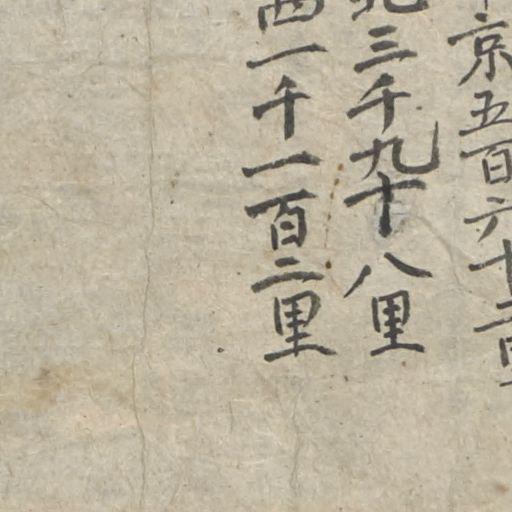 京五百六十二里
北三千九十八里
西一千一百二里